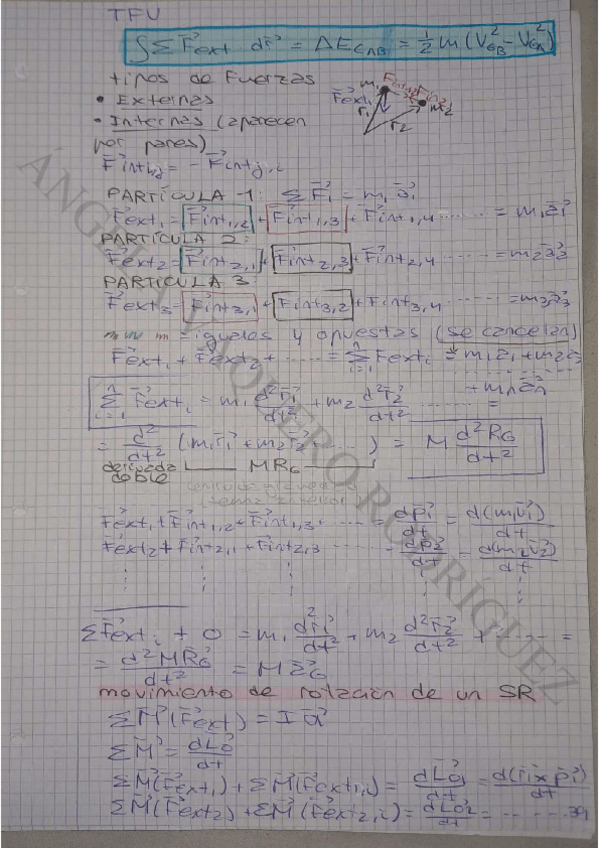 TFU
∫ΣF⃗ext dr⃗ = ΔEcAB = ½ m (V²GB - V²GA)
tipos de Fuerzas
• Externas
• Internas (aparecen
por pares)
F⃗inti,j = - F⃗intj,i
m₁ F⃗int1,2 F⃗int2,1 m₂
F⃗ext₁
r₁ r₂
PARTÍCULA 1: ΣF⃗i = m₁ a⃗₁
F⃗ext₁ = F⃗int1,2 + F⃗int1,3 + F⃗int1,4 ...... = m₁a⃗₁
PARTÍCULA 2:
F⃗ext₂ = F⃗int2,1 + F⃗int2,3 + F⃗int2,4 ...... = m₂a⃗₃
PARTÍCULA 3:
F⃗ext₃ = F⃗int3,1 + F⃗int3,2 + F⃗int3,4 ...... = m₃a⃗₃
= iguales y opuestas (se cancelan)
F⃗ext₁ + F⃗ext₂ + ...... = Σⁿi=1 F⃗exti = m₁a⃗₁ + m₂a⃗₂
...... + mₙa⃗ₙ
Σⁿi=1 F⃗exti = m₁ d²r⃗₁/dt² + m₂ d²r⃗₂/dt² ...... =
= d²/dt² (m₁r⃗₁ + m₂r⃗₂ ......) = M d²RG/dt²
derivada MRG
doble
F⃗ext₁ + F⃗int1,2 + F⃗int1,3 ...... dp⃗₁/dt = d(m₁v⃗₁)/dt
F⃗ext₂ + F⃗int2,1 + F⃗int2,3 ...... = dp⃗₂/dt = d(m₂v⃗₂)/dt
ΣF⃗exti + 0 = m₁ d²r⃗₁/dt² + m₂ d²r⃗₂/dt² + ...... =
= d²MR⃗G/dt² = Ma⃗G
movimiento de rotación de un SR
ΣM⃗(F⃗ext) = I α⃗
ΣM⃗ = dL⃗o/dt
ΣM⃗(F⃗ext₁) + ΣM⃗(F⃗ext1,i) = dL⃗o₁/dt = d(r⃗₁xp⃗₁)/dt
ΣM⃗(F⃗ext₂) + ΣM⃗(F⃗ext₂,i) = dL⃗o₂/dt = ......